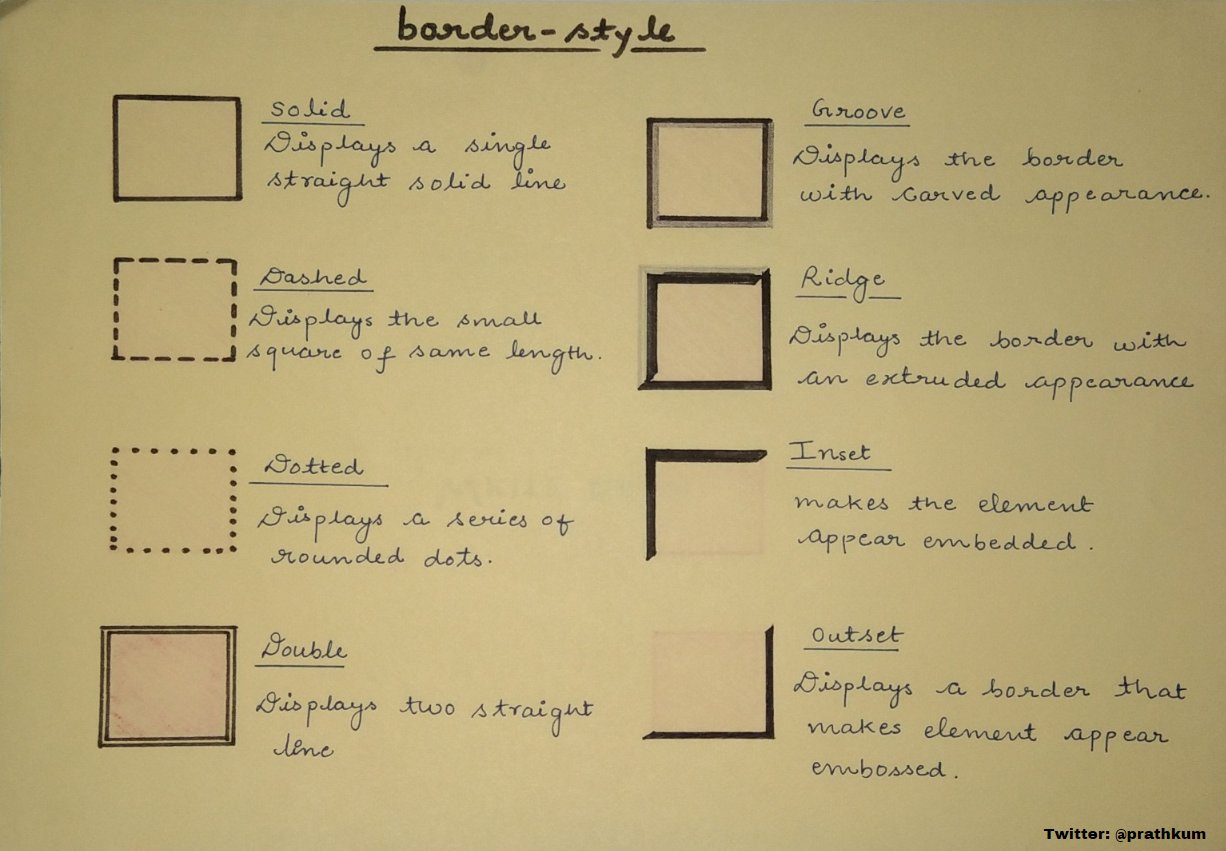 border-style
Solid
Displays a single
straight solid line
Dashed
Displays the small
square of same length.
Dotted
Displays a series of
rounded dots.
Double
Displays two straight
line
Groove
Displays the border
with carved appearance.
Ridge
Displays the border with
an extruded appearance
Inset
makes the element
appear embedded.
Outset
Displays a border that
makes element appear
embossed.
Twitter: @prathkum